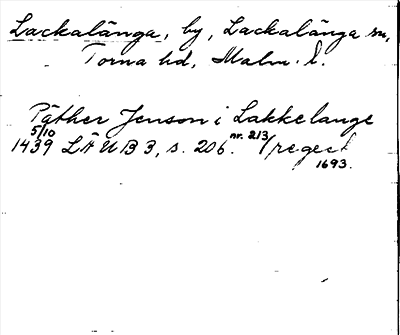 Lackalänga, by, Lackalänga sn,
Torna hd, Malm. l.
Päther Jenson i Lakkelange
5/10 1439 LÄUB 3, s. 206. nr. 213 /regest
1693.